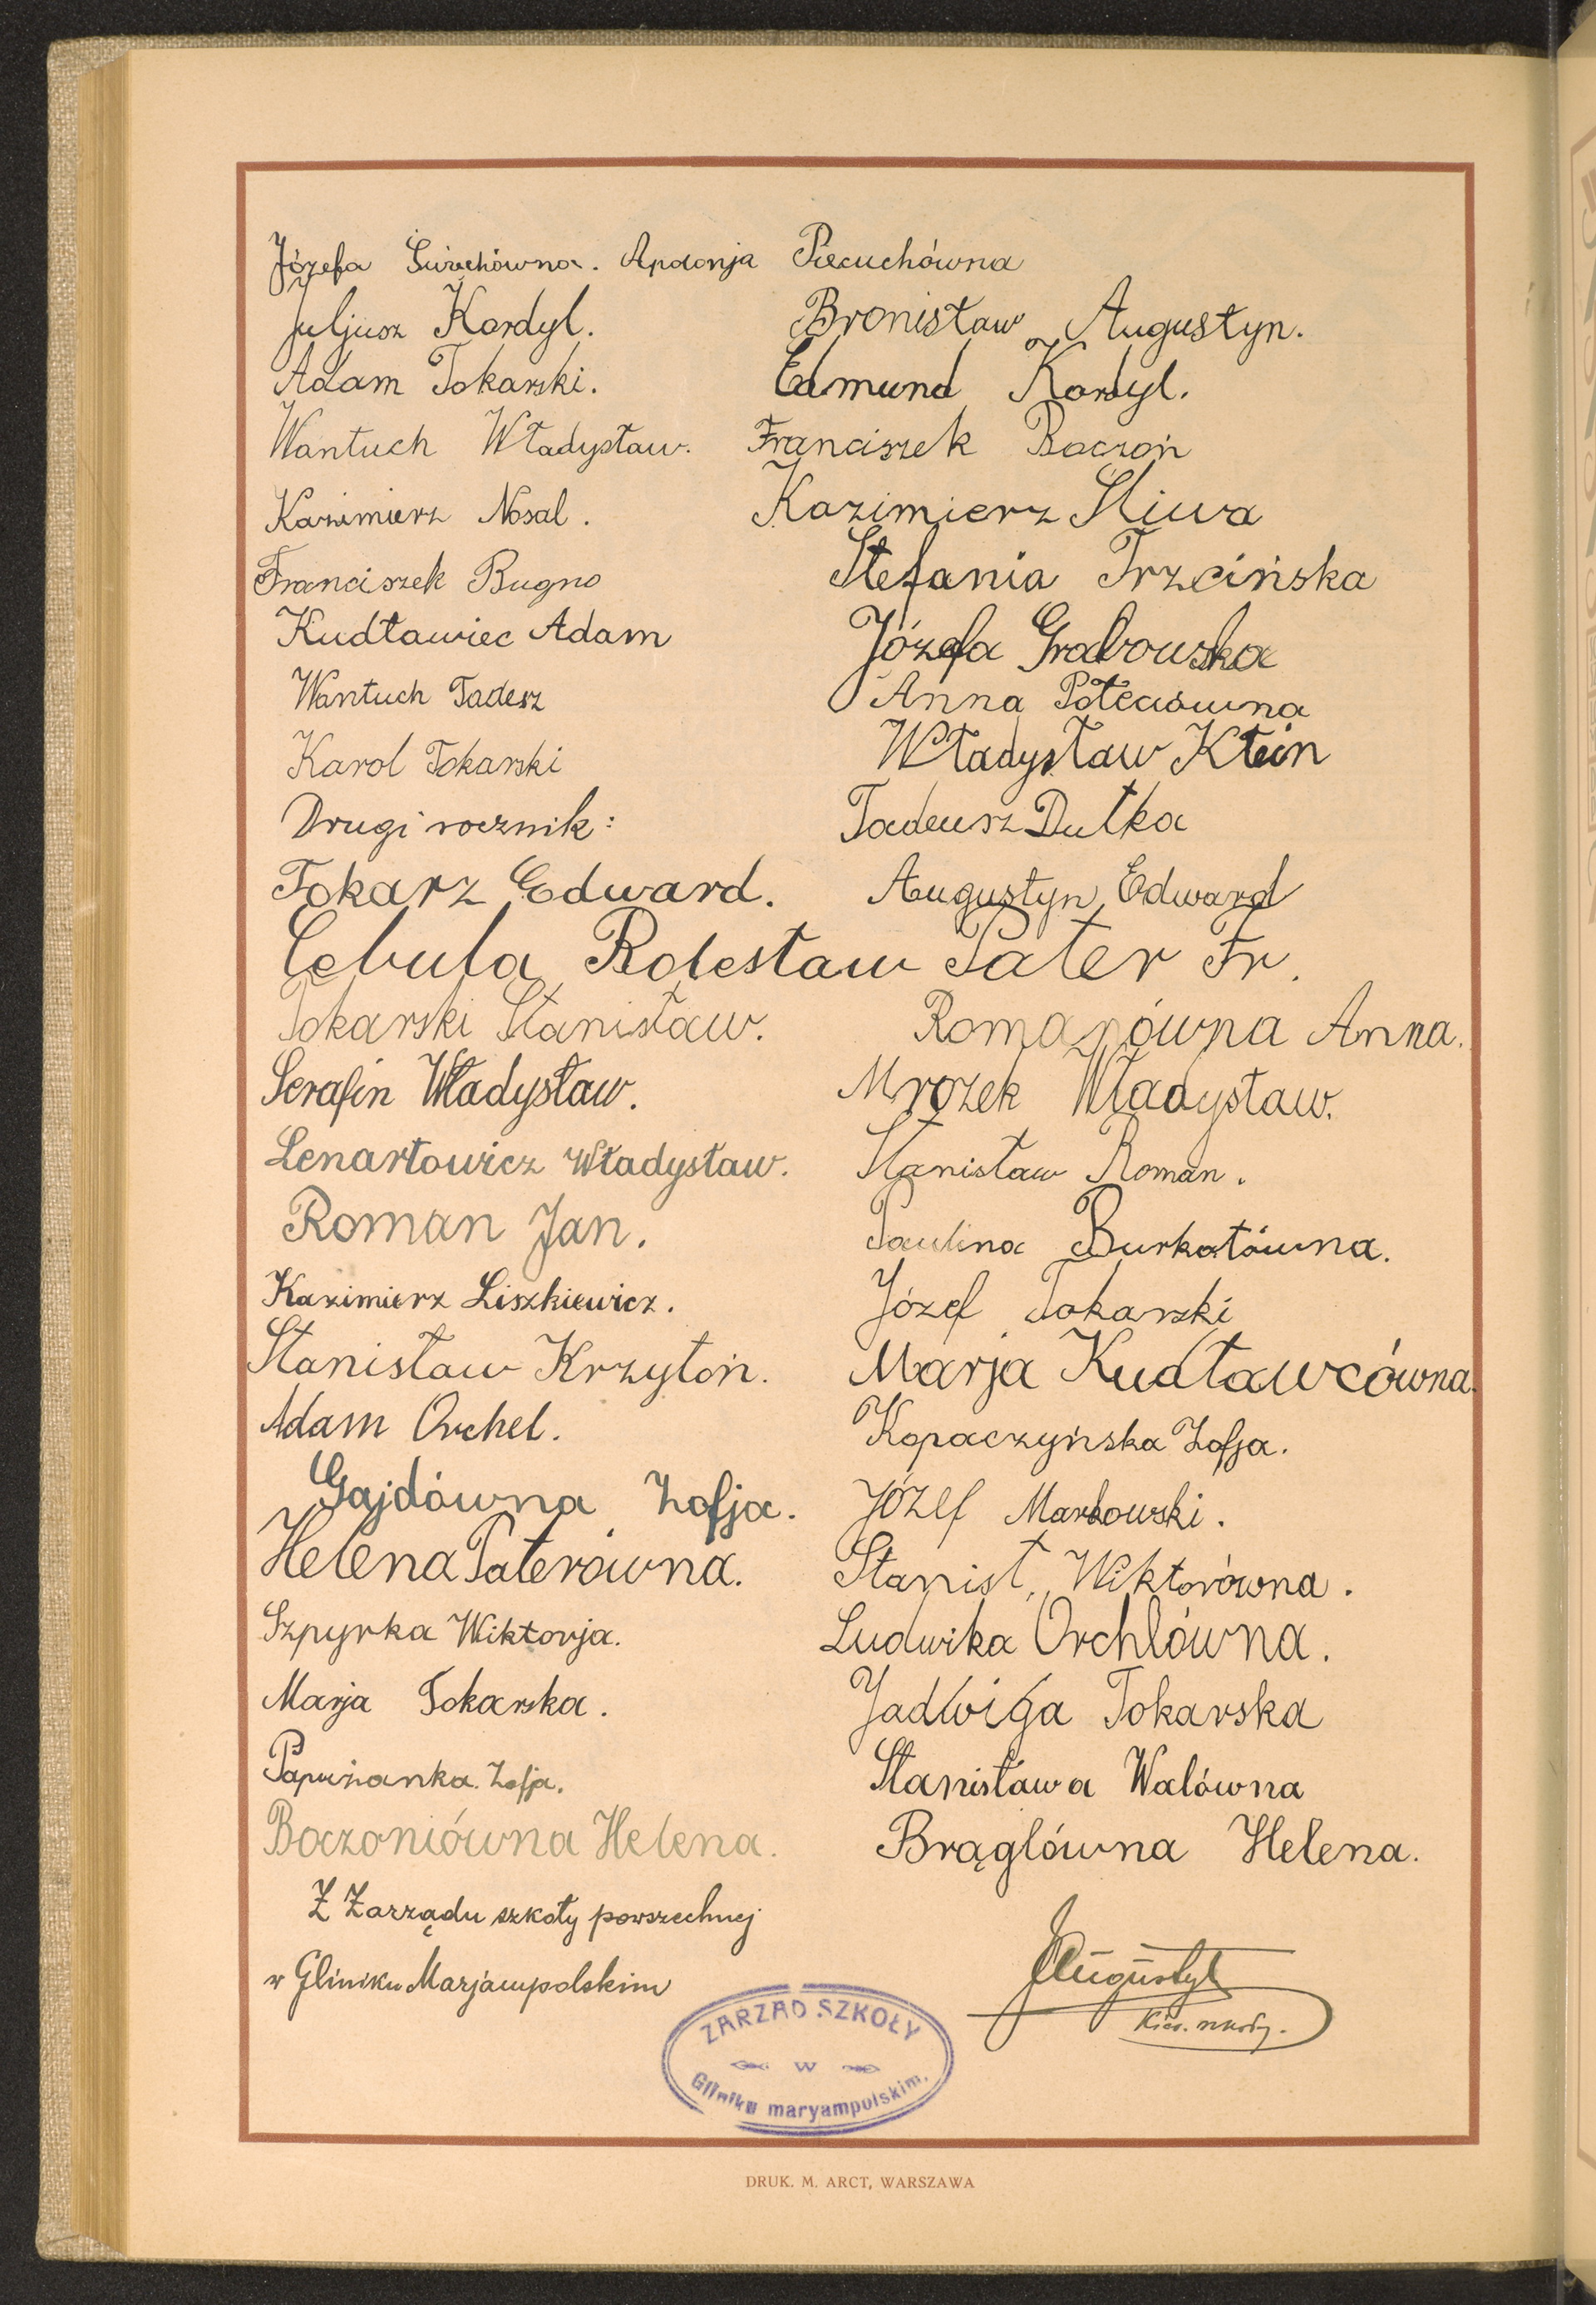 Józefa Świechówna. Apolonja Piecuchówna
Juljusz Kordyl. Bronisław Augustyn.
Adam Tokarski. Edmund Kordyl.
Wantuch Władysław. Franciszek Boczoń
Kazimierz Nosal. Kazimierz Śliwa
Franciszek Bugno Stefania Trzcińska
Kudławiec Adam Józefa Grabowska
Wantuch Tadesz Anna
Karol Tokarski Władysław Klein
Drugi rocznik: Tadeusz Dutka
Tokarz Edward. Augustyn Edward
Cebula Bolesław Pater Fr.
Tokarski Stanisław. Romanówna Anna.
Serafin Władysław. Mrozek Władysław.
Lenartowicz Władysław. Stanisław Roman.
Roman Jan. Paulina Burkotówna.
Kazimierz Liszkiewicz. Józef Tokarski
Stanisław Krzytoń. Marja Kudławcówna.
Adam Orchel. Kopaczyńska Zofja.
Gajdówna Zofja. Józef Markowski.
Helena Paterówna. Stanisł. Wiktorówna.
Szpyrka Wiktorja. Ludwika Orchlówna.
Marja Tokarska. Jadwiga Tokarska
Papużanka Zofja. Stanisława Walówna
Boczoniówna Helena. Brąglówna Helena.
Z Zarządu szkoły powszechnej
w Gliniku Marjampolskim
JAugustyn
Kier. szkoły.
ZARZĄD SZKOŁY
w
Gliniku maryampolskim.
DRUK. M. ARCT, WARSZAWA